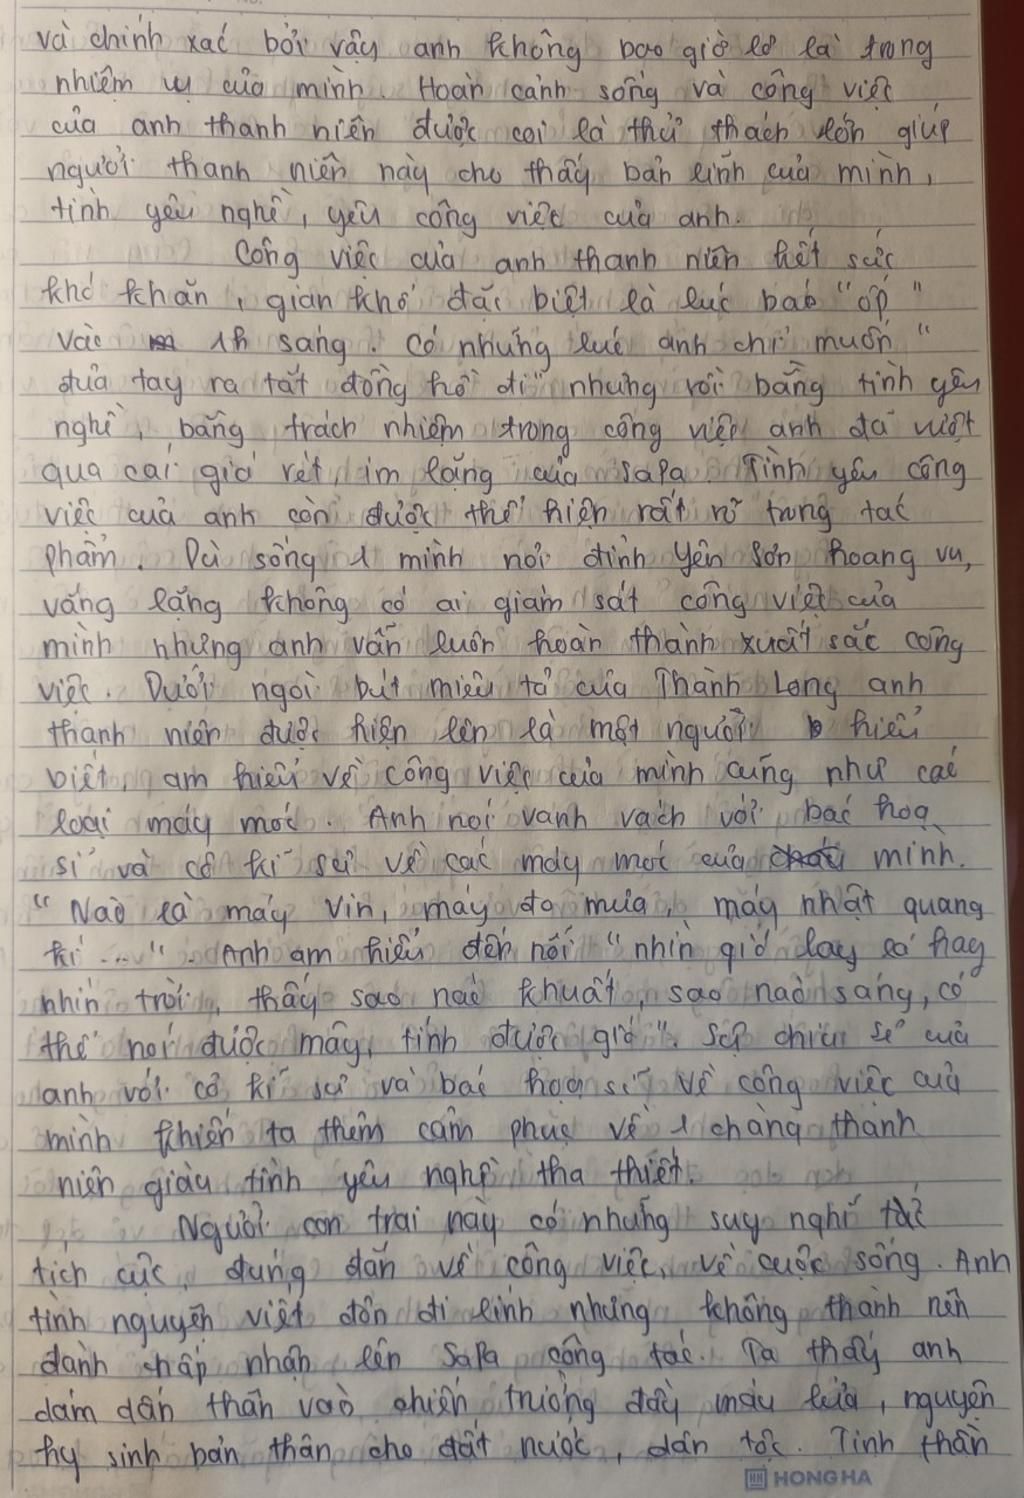 và chính xác bởi vậy anh không bao giờ lơ là trong
nhiệm vụ của mình. Hoàn cảnh sống và công việc
của anh thanh niên được coi là thử thách lớn giúp
người thanh niên này cho thấy bản lĩnh của mình,
tình yêu nghề, yêu công việc của anh.
Công việc của anh thanh niên hết sức
khó khăn, gian khổ đặc biệt là lúc báo "ốp"
vào 1h sáng. Có những lúc anh chỉ muốn "
đưa tay ra tắt đồng hồ đi" nhưng rồi bằng tình yêu
nghề, bằng trách nhiệm trong công việc anh đã vượt
qua cái giá rét, im lặng của SaPa. Tình yêu công
việc của anh còn được thể hiện rất rõ trong tác
phẩm. Dù sống 1 mình nơi đỉnh Yên Sơn hoang vu,
vắng lặng không có ai giám sát công việc của
mình nhưng anh vẫn luôn hoàn thành xuất sắc công
việc. Dưới ngòi bút miêu tả của Thành Long anh
thanh niên được hiện lên là một người hiểu
biết, am hiểu về công việc của mình cũng như các
loại máy móc. Anh nói vanh vách với bác hoạ
sĩ và cô kĩ sư về các máy móc của mình.
"Nào là máy Vin, máy đo mưa, máy nhật quang
kí ...". Anh am hiểu đến nỗi "nhìn gió lay lá hay
nhìn trời, thấy sao nào khuất, sao nào sáng, có
thể nói được mây, tính được gió". Sự chia sẻ của
anh với cô kĩ sư và bác hoạ sĩ về công việc của
mình khiến ta thêm cảm phục về 1 chàng thanh
niên giàu tình yêu nghề tha thiết.
Người con trai này có những suy nghĩ
tích cực, đúng đắn về công việc, về cuộc sống. Anh
tình nguyện viết đơn đi lính nhưng không thành nên
đành chấp nhận lên SaPa công tác. Ta thấy anh
dám dấn thân vào chiến trường đầy máu lửa, nguyện
hy sinh bản thân cho đất nước, dân tộc. Tinh thần
HONG HA